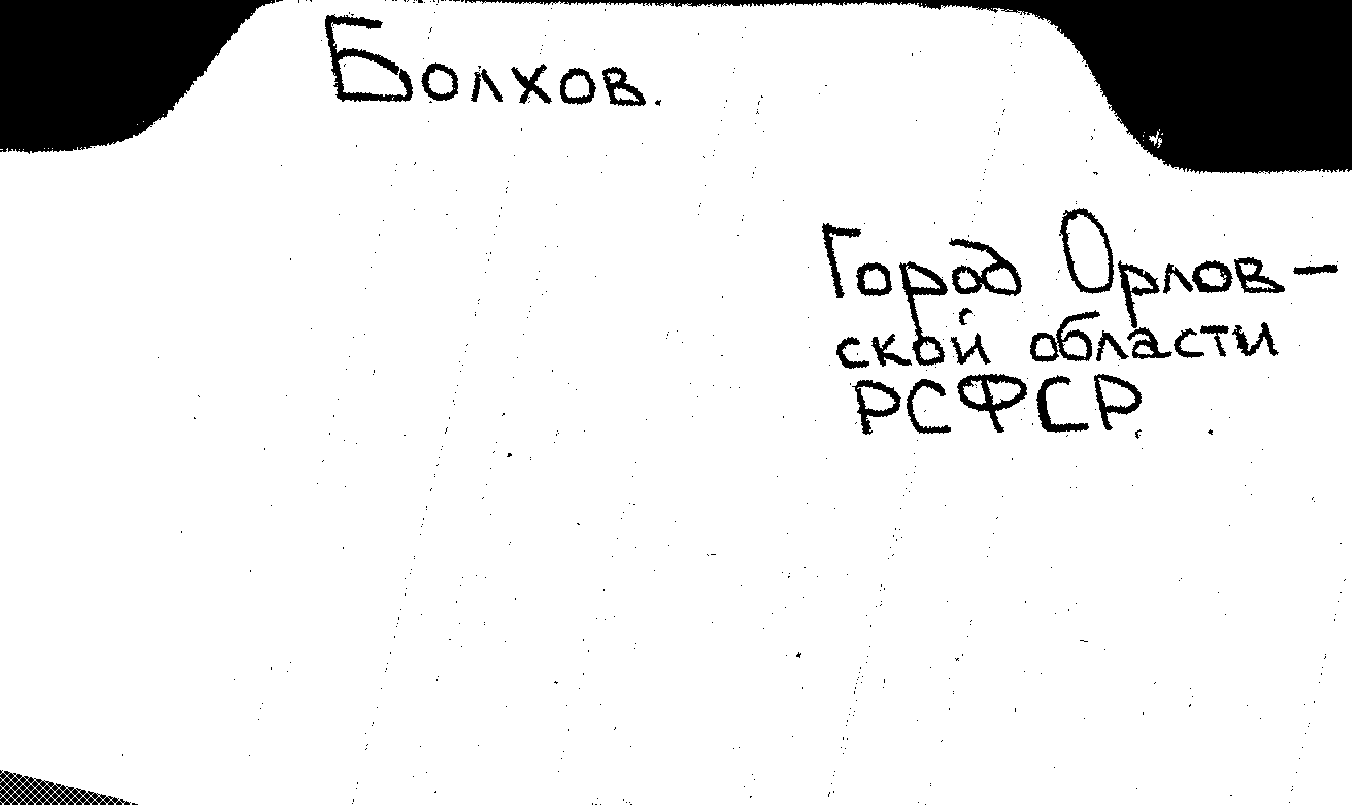 Болхов.
Город Орлов-
ской области
РСФСР.